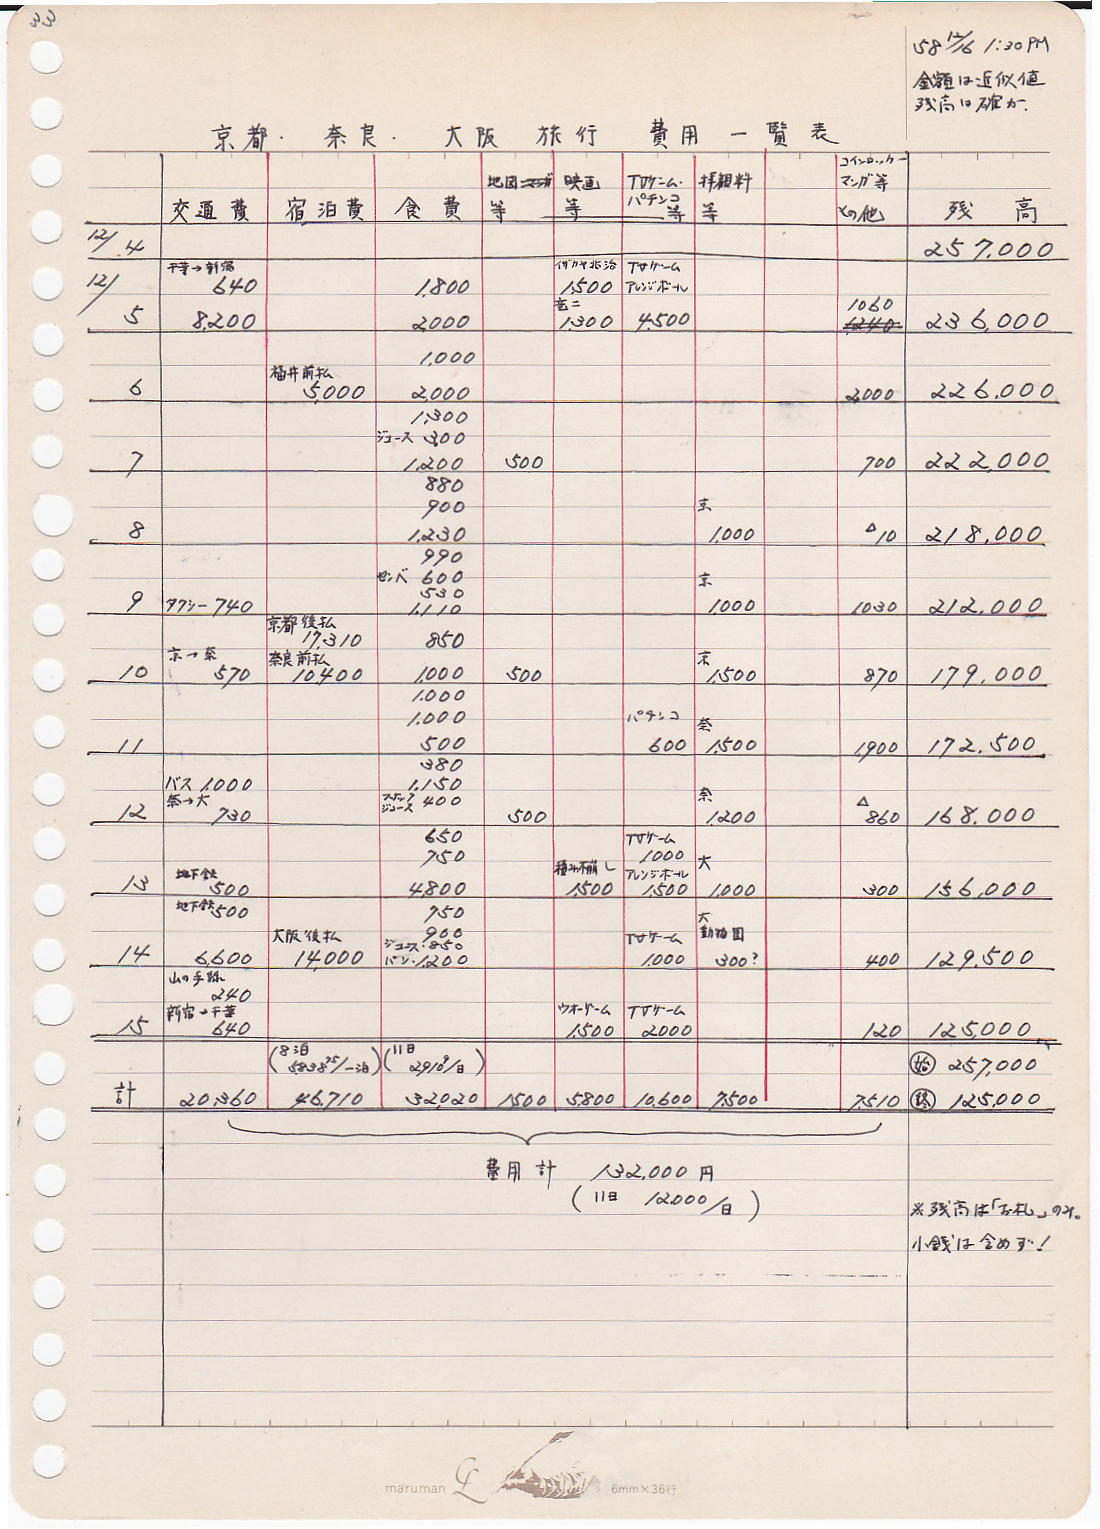 33
58 12/16 1:30PM
金額は近似値
残高は確か.
京都・奈良・大阪 旅行 費用一覧表
交通費 宿泊費 食費 地図等 映画等 TVゲーム・パチンコ等 拝観料等 コインロッカーマンガ等その他 残高
12/4 257,000
千葉→新宿 イザカヤ北治 TVゲーム
640 1,800 1,500 アレンジボール
竜二 1060
12/5 8,200 2000 1,300 4,500 1240 236,000
1,000
福井前払
6 5,000 2,000 2,000 226,000
1,300
ジュース 300
7 1,200 500 700 222,000
880
900 京
8 1,230 1,000 △10 218,000
990
センベ 600 京
530
9 タクシー 740 1,110 1,000 1030 212,000
京都後払
17,310 850
京→奈 奈良前払 京
10 570 10,400 1,000 500 1,500 870 179,000
1,000
1,000 パチンコ 奈
11 500 600 1,500 1,900 172,500
380
バス 1,000 1,150
奈→大 スナックジュース 400 奈 △
12 730 500 1,200 860 168,000
650 TVゲーム
750 1000 大
地下鉄 積み木崩し アレンジボール
13 500 4,800 1,500 1,500 1,000 300 156,000
地下鉄 500 750 大
900 動物園
大阪後払 ジュース・850 TVゲーム
14 6,600 14,000 パン・1,200 1,000 300? 400 129,500
山の手線
240
新宿→千葉 ウォーゲーム TVゲーム
15 640 1,500 2000 120 125,000
(8泊 5,838.75/一泊) (11日 2,910.9/日) 始 257,000
計 20,360 46,710 32,020 1,500 5,800 10,600 7,500 7,510 終 125,000
費用計 132,000円
(11日 12,000/日)
※残高は「お札」のみ。
小銭は含めず!
maruman 6mm×36行